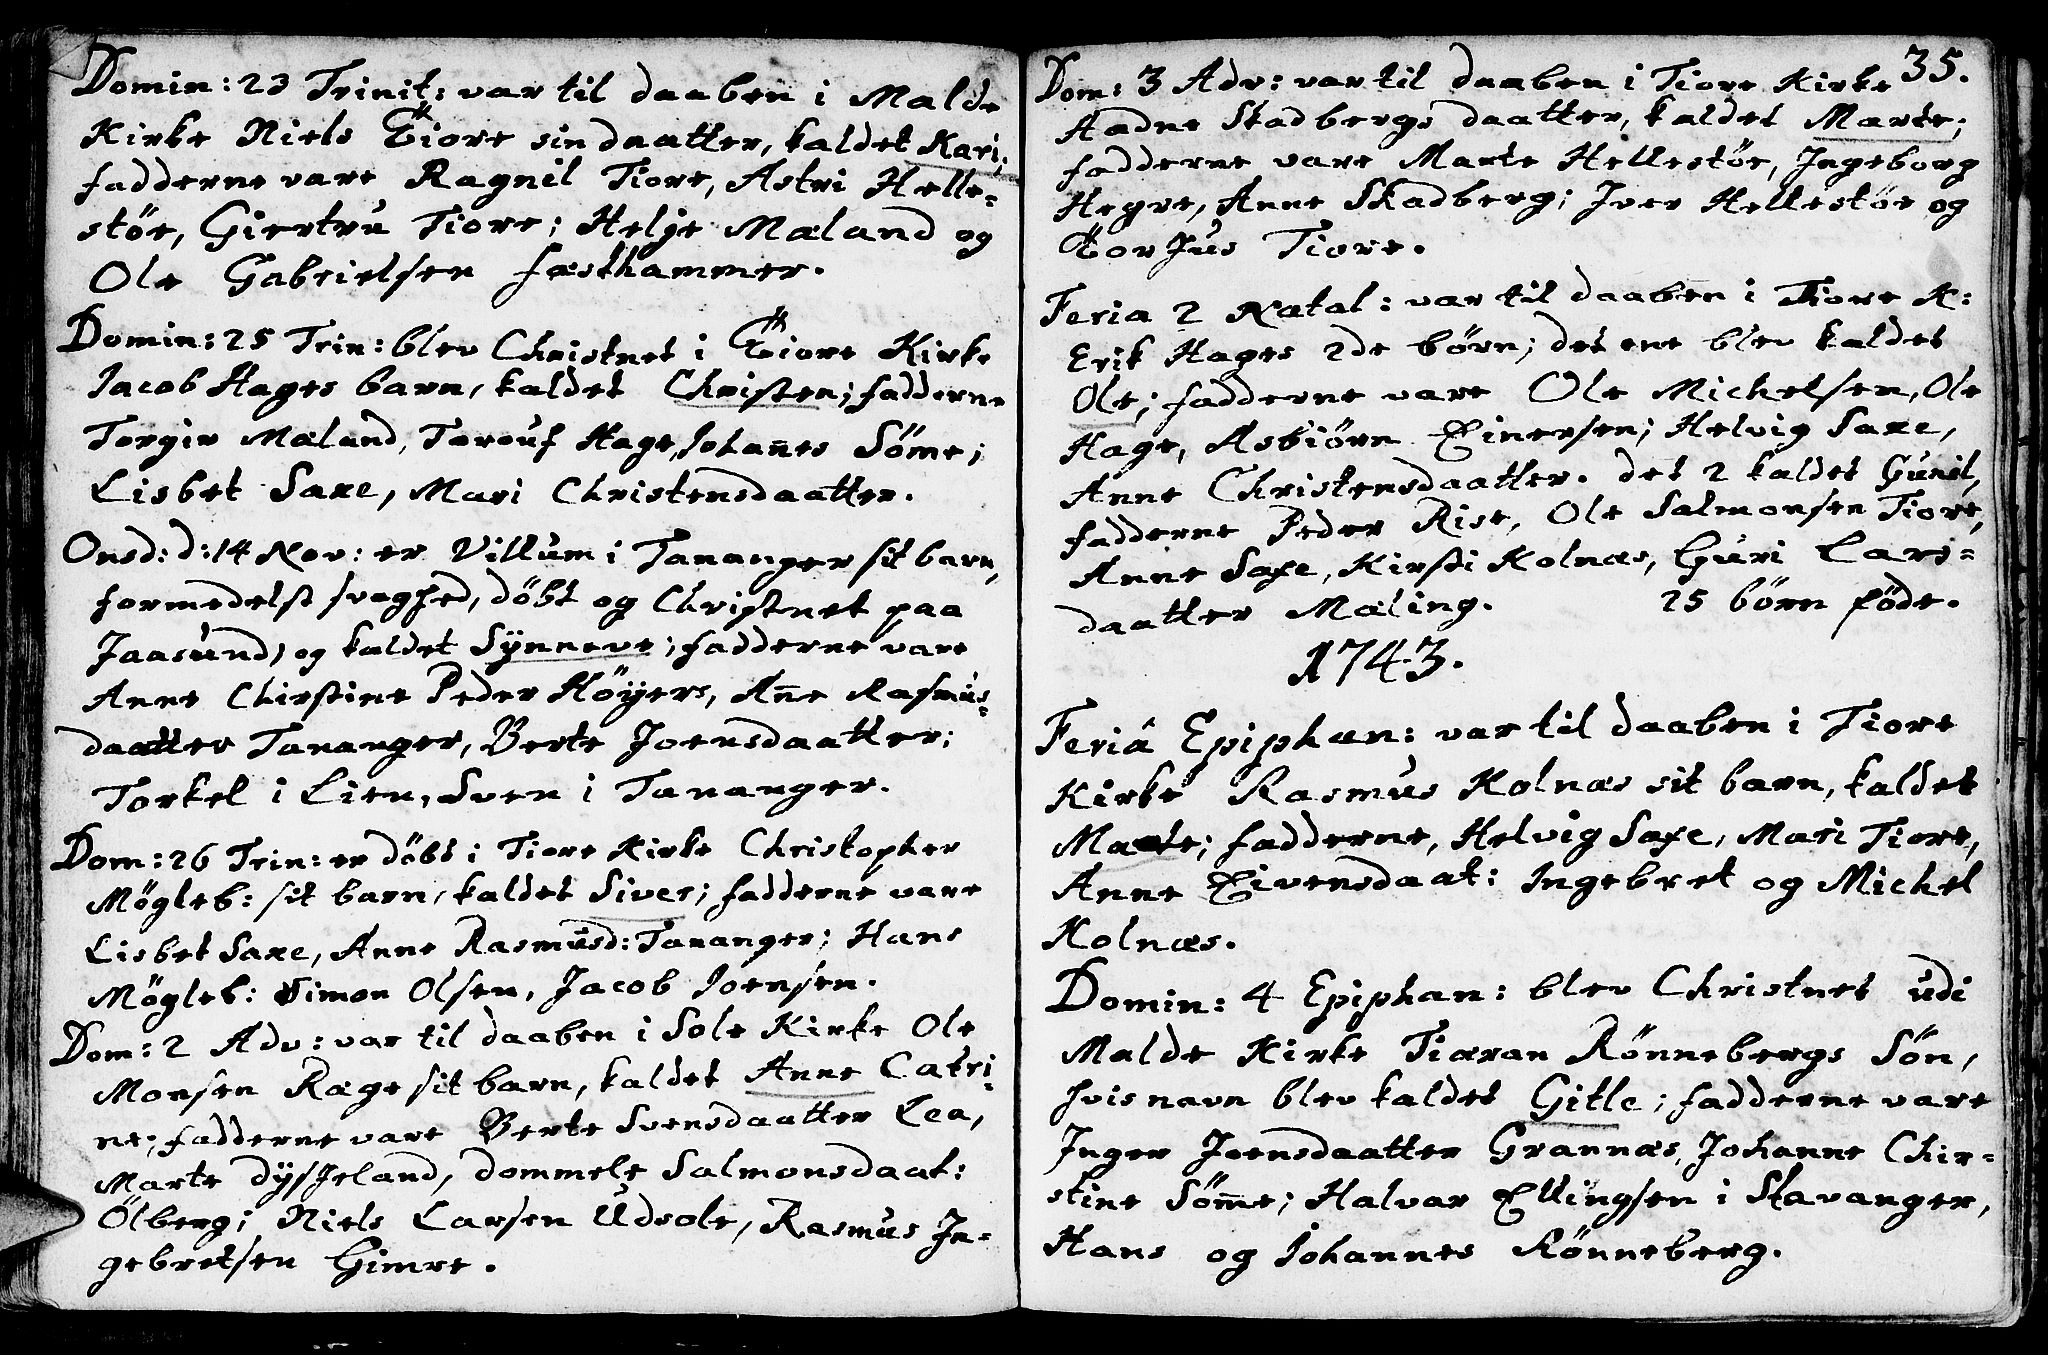 Domin: 23 Trinit: var til daaben i Malde
Kirke Niels Tiore sin daatter, kaldet Kari;
fadderne vare Ragnil Tiore, Astri Helle-
stör, Giertru Tiore; Helje Mæland og
Ole Gabrielsen fæsthammer.
Domin: 25 Trin: blev Christnet i Tiore Kirke
Jacob Hages barn, kaldet Christen; fadderne
Torgir Mæland, Torouf Hage, Johan̄es Söme;
Lisbet Saxe, Mari Christensdaatter.
Onsd: d: 14 Nov: er Villum i Tananger sit barn,
formedelst svaghed, döbt og Christnet paa
Jaasund, og kaldet Synneve; fadderne vare
Anne Chirstine Peder Höyers, An̄e Rasmus-
daatter Tananger, Berte Joensdaatter;
Torkel i Lien, Sven i Tananger.
Dom: 26 Trin: er döbt i Tiore Kirke Christopher
Mögleb: sit barn, kaldet Siver; fadderne vare
Lisbet Saxe, Anne Rasmusd: Tananger; Hans
Mögleb: Simon Olsen, Jacob Joensen.
Dom: 2 Adv: var til daaben i Sole Kirke Ole
Monsen Ræge sit barn, kaldet Anne Catri-
ne; fadderne vare Berte Svensdaatter Lea,
Marte Dysjeland, Dommele Salmonsdaat:
Ölberg; Niels Larsen Udsole, Rasmus In-
gebretsen Gimre.
35.
Dom: 3 Adv: var til daaben i Tiore Kirke
Aadne Skadbergs daatter, kaldet Marte;
fadderne vare Marte Hellestöe, Ingeborg
Hegre, Anne Skadberg; Iver Hellestöe og
Torjus Tiore.
Feria 2 Natal: var til daaben i Tiore K:
Erik Hages 2de börn; det ene blev kaldet
Ole; fadderne vare Ole Michelsen, Ole
Hage, Asbiörn Einersen; Helvig Saxe,
Anne Christensdaatter. det 2 kaldet Gunil,
fadderne Peder Rise, Ole Salmonsen Tiore,
Anne Saxe, Kirsti Kolnæs, Guri Lars-
daatter Mæling. 25 börn föde.
1743.
Feriâ Epiphan: var til daaben i Tiore
Kirke Rasmus Kolnæs sit barn, kaldet
Marte; fadderne, Helvig Saxe, Mari Tiore,
Anne Eivensdaat: Ingebret og Michel
Kolnæs.
Domin: 4 Epiphan: blev Christnet udi
Malde Kirke Tiæran Rönnebergs Sön,
hvis navn blev kaldet Gitle; fadderne vare
Inger Joensdaatter Grannæs, Johanne Chir-
stine Söm̄e; Halvar Ellingsen i Stavanger,
Hans og Johannes Rönneberg.